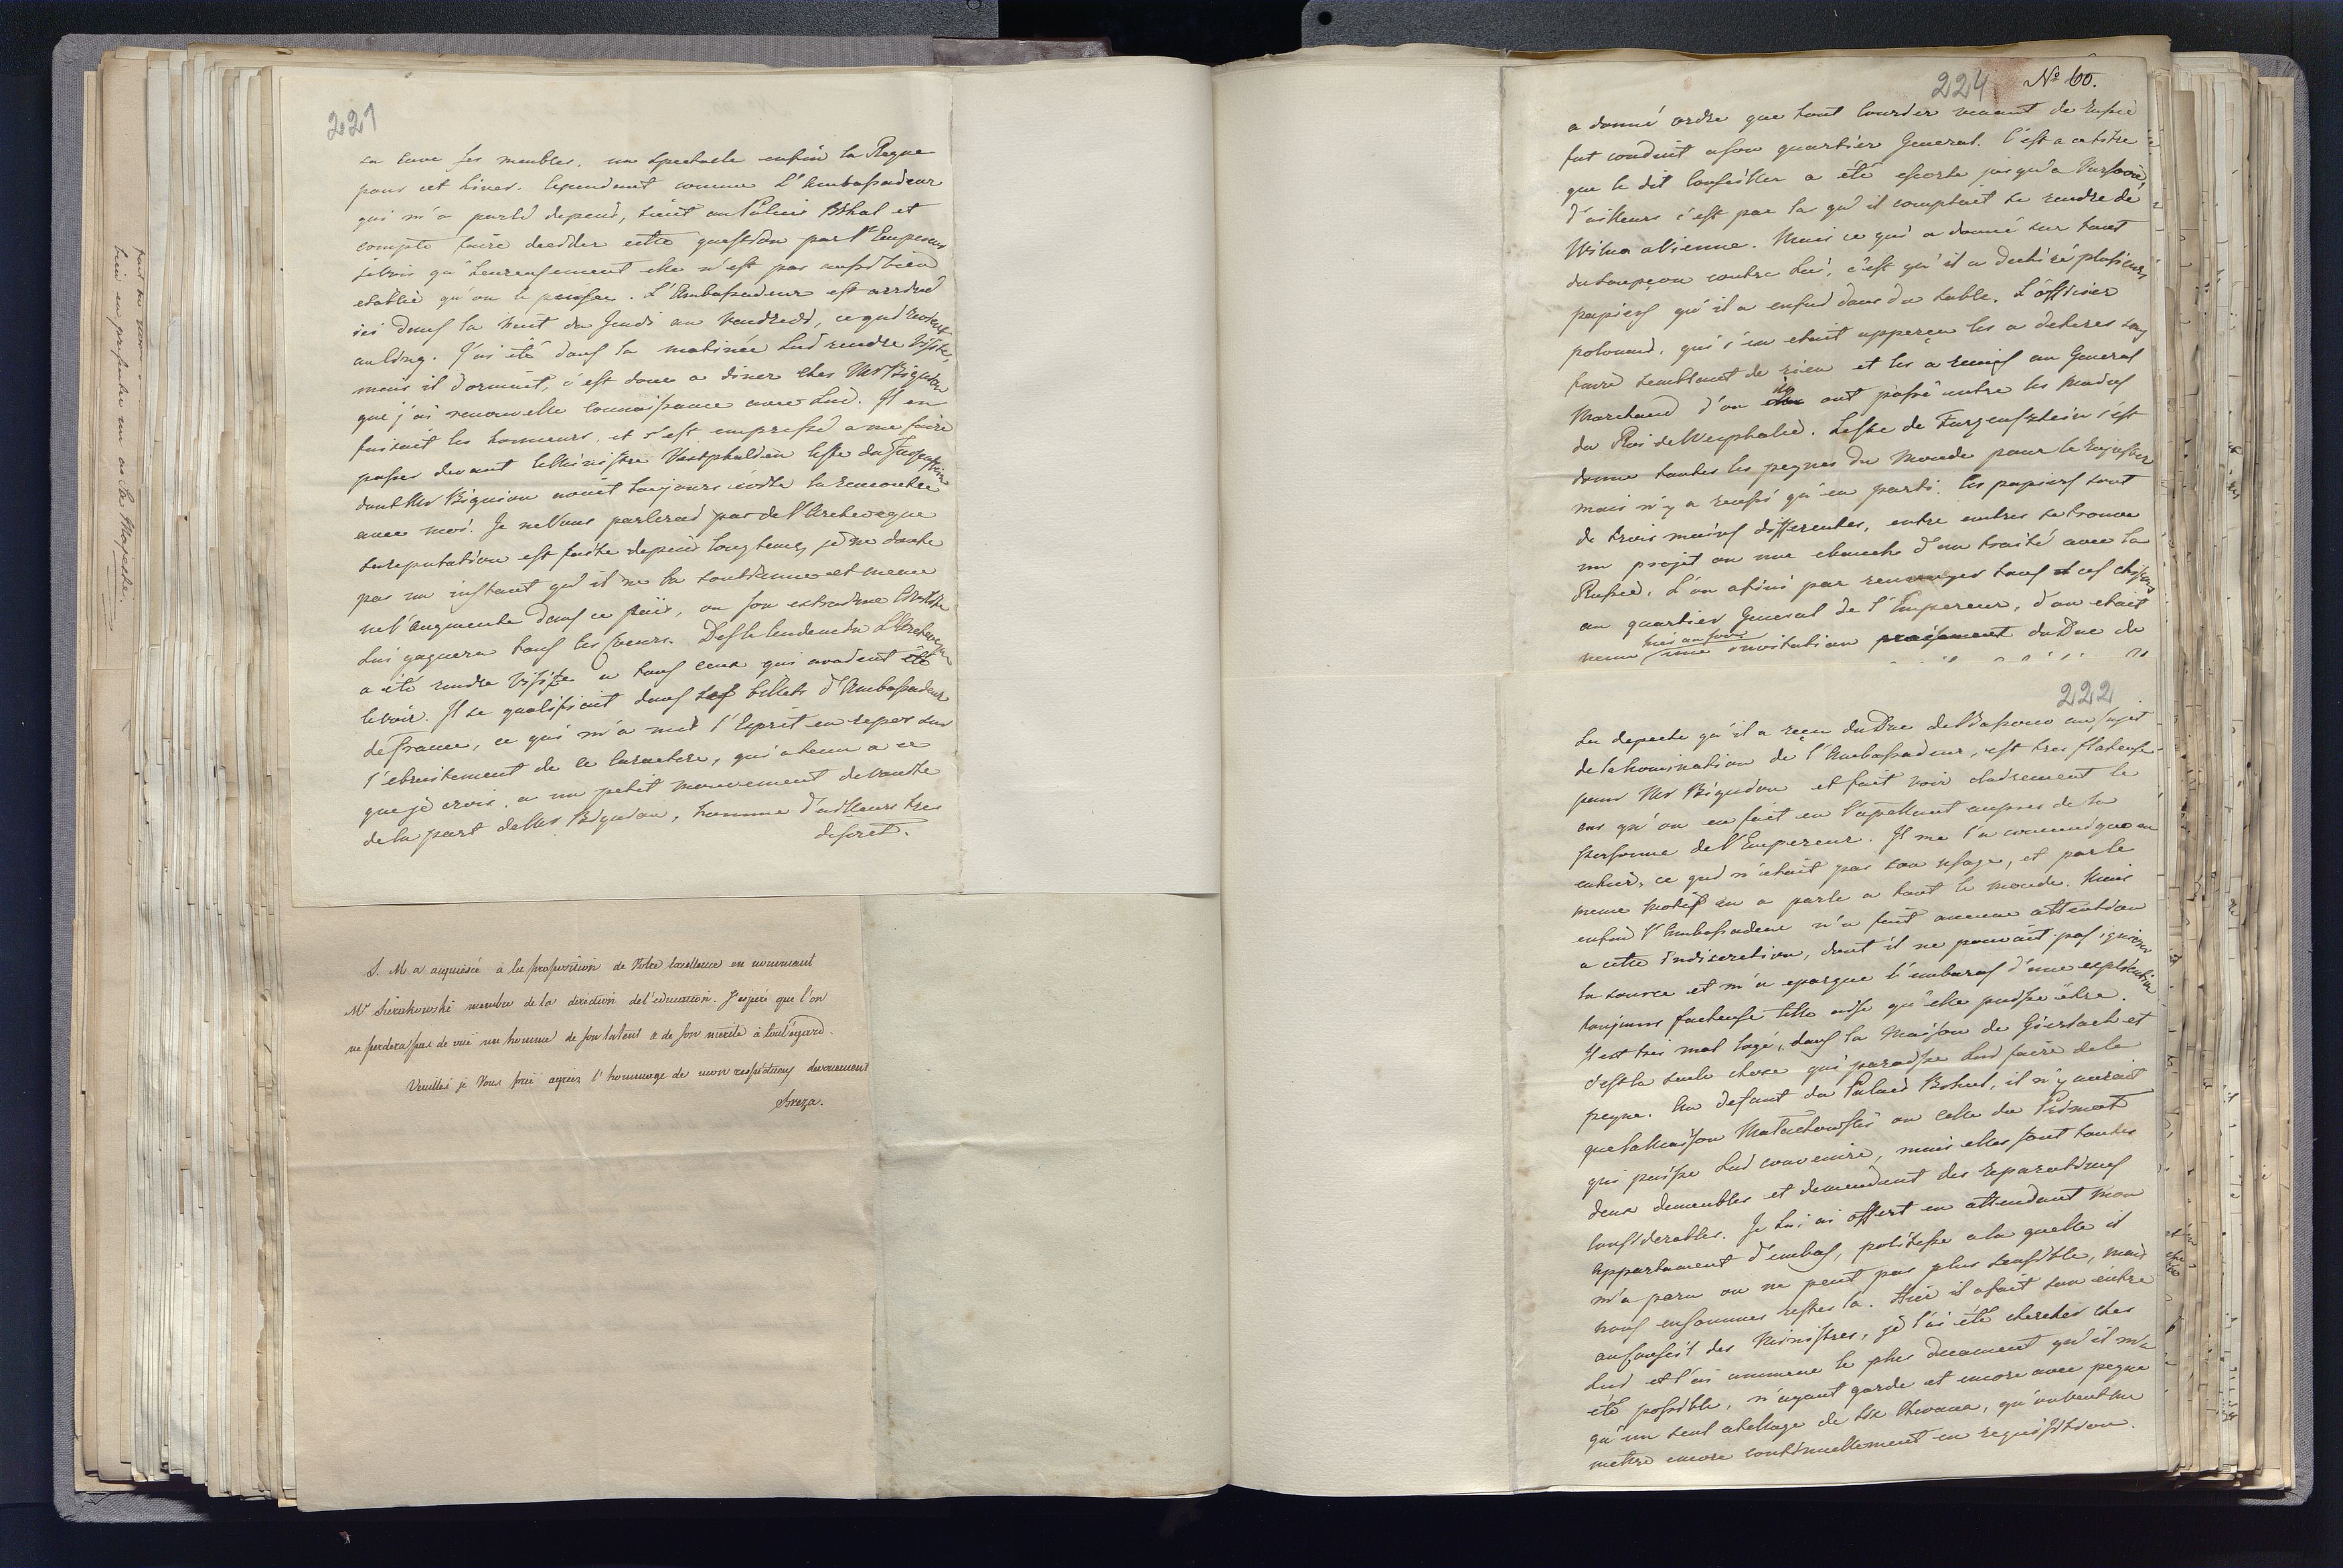 221
sa cave ses meubles, un spectacle enfin la Peyne
pour cet hiver. Cependant comme L'Ambassadeur
qui m'a parlé depuis, tient au Palais Brhal et
compte faire decider cette question par l'Empereur
je vois qu'heureusement elle n'est pas aussi bien
etablie qu'on le pense. L'Ambassadeur est arrivé
ici dans la Nuit du Jeudi au Vendredi, ce qui
au long. J'ai été dans la matinée Lui rendre Visite,
mais il dormait, c'est donc a diner chez Mr Bignon
que j'ai renouvelle connaissance avec Lui. Il en
faisait les honneurs, et s'est empressé a me faire
passer devant le Ministre Vestphalien
dont Mr Bignion avait toujours évité la rencontre
avec moi. Je ne Vous parlerai pas de l'Archeveque
sa reputation est faite depuis longtems, je ne doute
pas un instant qu'il ne la soutienne et meme
ne l'augmente dans ce païs, ou son extreme
Lui gagnera tous les Coeurs. Des le lendemain L'Archeveque
a été rendre Visite a tous ceux qui avoient été
le voir. Il se qualifiait dans ses billets d'Ambassadeur
de france, ce qui m'a mis l'Esprit en repos sur
l'ebruitement de ce Caractere, qui a tenu a ce
que je crois, a un petit mouvement de
de la part de Mr Bignion, homme d'ailleurs tres
discret.
S. M a acquiescé à la proposition de Votre Excellence en nommant
Mr Sierakowski membre de la direction de l'education. J'espére que l'on
ne perdera pas de vuë un homme de son talent & de son merite à tout égard.
Veuillés je Vous prie agréer l'hommage de mon respectueux devouement
Breza.
224 No 60.
a donné ordre que tout Courier venant de Russie
fut conduit a son quartier General. C'est a ce titre
que le dit Conseiller a été escorté jusqu'a Varsovie
d'ailleurs c'est par la qu'il comptait se rendre de
Wilna a Vienne. Mais ce qui a donné sur tout
du soupçon contre Lui, c'est qu'il a dechiré plusieurs
papiers qu'il a enfui dans du sable. L'officier
polonais, qui s'en etait apperçu les a deterés sans
faire semblant de rien et les a remis au General
Marchand d'ou ils ont passé entre les mains
du Roi de Westphalie. Leste de Furgensztein s'est
donné toutes les peynes du Monde pour le rajuster
mais n'y a reussi qu'en parti. Ces papiers sont
de trois mains differentes, entre autres se trouve
un projet ou une ebauche d'un traité avec la
Russie. L'on a fini par renvoyer tous ces chifons
au quartier General de l'Empereur, d'ou etait
venu hier au soir une invitation du Duc de
222
La depeche qu'il a reçu du Duc de Bassano au sujet
de la Nomination de l'Ambassadeur, est tres flateuse
pour Mr Bignion et fait voir clairement le
cas qu'on en fait en l'apellant aupres de la
personne de l'Empereur. Il me l'a communiqué en
entier, ce qui n'etait pas son usage, et par le
meme Motif en a parle a tout le monde. Mais
enfin l'Ambassadeur n'a fait aucune attention
a cette indiscretion, dont il ne pouvait pas ignorer
la source et m'a epargne l'embaras d'une explication
toujours facheuse telle aise qu'elle puisse être.
Il est tres mal logé, dans la Maison de Gierlach et
c'est la seule chose qui paraisse Lui faire de la
peyne. Au defaut du Palais Brhul, il n'y aurait
que la Maison Malachowski ou celle du Primat
qui puisse Lui convenire, mais elles sont toutes
deux demeublés et demandent des Reparations
Considerables. Je Lui ai offert en attendant mon
Appartement d'enbas, politesse a la quelle il
m'a paru on ne peut pas plus sensible, mais
nous en sommes restes la. Hier il a fait son entré
au Conseil des Ministres, je l'ai été chercher chez
Lui et l'ai ammené le plus decament qu'il m'a
été possible, n'ayant gardé et encore avec peyne
qu'un seul atellage de six Chevaux, qu'on veut me
mettre encore continuellement en requisition.